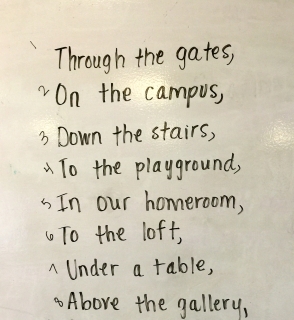 1 Through the gates,
2 On the campus,
3 Down the stairs,
4 To the playground,
5 In our homeroom,
6 To the loft,
7 Under a table,
8 Above the gallery,